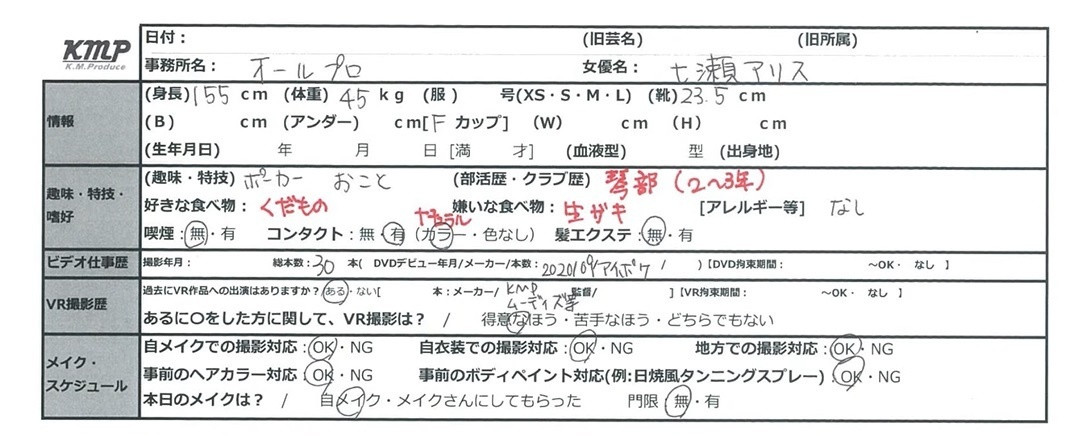 KMP
K.M.Produce
日付： (旧芸名) (旧所属)
事務所名： オールプロ 女優名： 七瀬アリス
情報
(身長)155 cm (体重) 45 kg (服 ) 号(XS・S・M・L) (靴)23.5 cm
(B) cm (アンダー) cm[F カップ] (W) cm (H) cm
(生年月日) 年 月 日 [満 才] (血液型) 型 (出身地)
趣味・特技・嗜好
(趣味・特技) ポーカー おこと (部活歴・クラブ歴) 琴部 (2〜3年)
好きな食べ物： くだもの 嫌いな食べ物： 生ガキ [アレルギー等] なし
ナチュラル
喫煙：無・有 コンタクト：無・有 (カラー・色なし) 髪エクステ：無・有
ビデオ仕事歴
撮影年月： 総本数：30 本( DVDデビュー年月/メーカー/本数：2020/09/アイポケ / )【DVD拘束期間： 〜OK・ なし 】
VR撮影歴
過去にVR作品への出演はありますか？ ある・ない[ 本：メーカー/ KMP ムーディズ等 監督/ ]【VR拘束期間： 〜OK・ なし 】
あるに〇をした方に関して、VR撮影は？ / 得意なほう・苦手なほう・どちらでもない
メイク・スケジュール
自メイクでの撮影対応：OK・NG 自衣装での撮影対応：OK・NG 地方での撮影対応：OK・NG
事前のヘアカラー対応：OK・NG 事前のボディペイント対応(例:日焼風タンニングスプレー)：OK・NG
本日のメイクは？ / 自メイク・メイクさんにしてもらった 門限：無・有